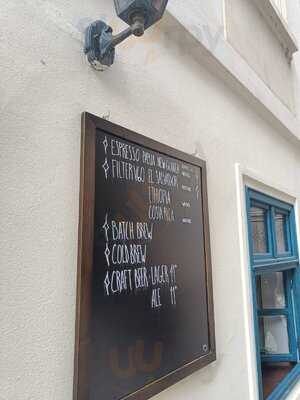 ESPRESSO PAPUA NEW GUINEA
FILTER V60 EL SALVADOR
ETHIOPIA
COSTA RICA
BATCH BREW
COLD BREW
CRAFT BEER - LAGER 11°
ALE 11°